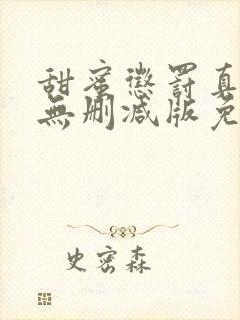 甜蜜懲罰真
無刪减版免
史密森